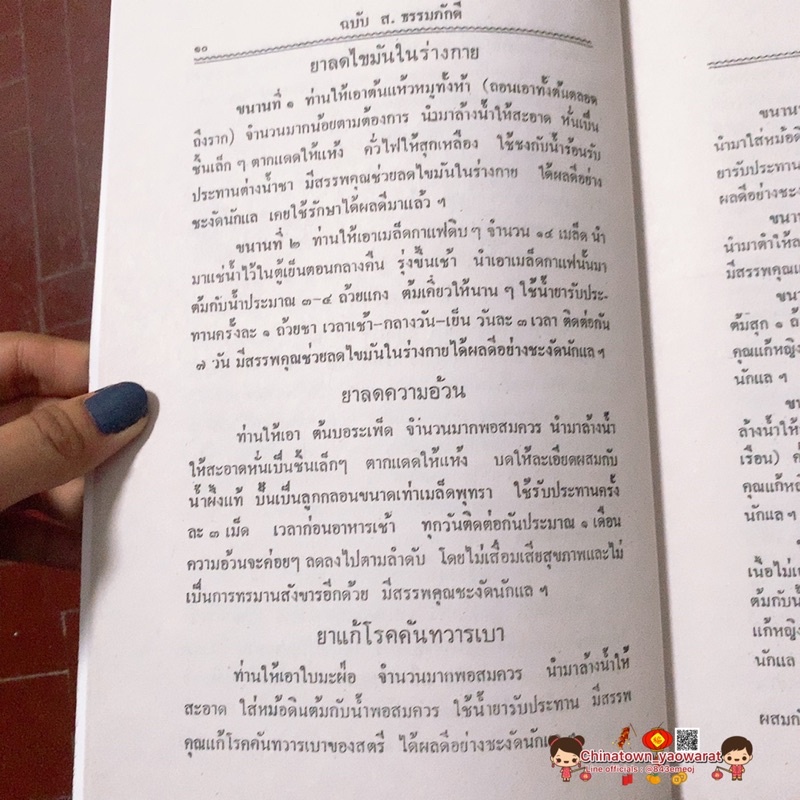 ฉบับ ส. ธรรมภักดี
๑๐
ยาลดไขมันในร่างกาย
ขนานที่ ๑ ท่านให้เอาต้นแห้วหมูทั้งห้า (ถอนเอาทั้งต้นตลอด
ถึงราก) จำนวนมากน้อยตามต้องการ นำมาล้างน้ำให้สะอาด หั่นเป็น
ชิ้นเล็ก ๆ ตากแดดให้แห้ง คั่วไฟให้สุกเหลือง ใช้ชงกับน้ำร้อนรับ
ประทานต่างน้ำชา มีสรรพคุณช่วยลดไขมันในร่างกาย ได้ผลดีอย่าง
ชะงัดนักแล เคยใช้รักษาได้ผลดีมาแล้ว ฯ
ขนานที่ ๒ ท่านให้เอาเมล็ดกาแฟดิบ ๆ จำนวน ๑๔ เมล็ด นำ
มาแช่น้ำไว้ในตู้เย็นตอนกลางคืน รุ่งขึ้นเช้า นำเอาเมล็ดกาแฟนั้นมา
ต้มกับน้ำประมาณ ๓-๔ ถ้วยแกง ต้มเคี่ยวให้นาน ๆ ใช้น้ำยารับประ-
ทานครั้งละ ๑ ถ้วยชา เวลาเช้า-กลางวัน-เย็น วันละ ๓ เวลา ติดต่อกัน
๗ วัน มีสรรพคุณช่วยลดไขมันในร่างกายได้ผลดีอย่างชะงัดนักแล ฯ
ยาลดความอ้วน
ท่านให้เอา ต้นบอระเพ็ด จำนวนมากพอสมควร นำมาล้างน้ำ
ให้สะอาดหั่นเป็นชิ้นเล็กๆ ตากแดดให้แห้ง บดให้ละเอียดผสมกับ
น้ำผึ้งแท้ ปั้นเป็นลูกกลอนขนาดเท่าเมล็ดพุทรา ใช้รับประทานครั้ง
ละ ๓ เม็ด เวลาก่อนอาหารเช้า ทุกวันติดต่อกันประมาณ ๑ เดือน
ความอ้วนจะค่อยๆ ลดลงไปตามลำดับ โดยไม่เสื่อมเสียสุขภาพและไม่
เป็นการทรมานสังขารอีกด้วย มีสรรพคุณชะงัดนักแล ฯ
ยาแก้โรคคันทวารเบา
ท่านให้เอาใบมะฝ่อ จำนวนมากพอสมควร นำมาล้างน้ำให้
สะอาด ใส่หม้อดินต้มกับน้ำพอสมควร ใช้น้ำยารับประทาน มีสรรพ
คุณแก้โรคคันทวารเบาของสตรี ได้ผลดีอย่างชะงัดนัก
ขนาน
นำมาใส่หม้อดิ
ยารับประทาน
ผลดีอย่างชะงัด
ขนา
นำมาตำให้ล
มีสรรพคุณแ
ขน
ต้มสุก ๑ ถ้
คุณแก้หญิง
นักแล ฯ
ข
ล้างน้ำให้
เรือน) ค
คุณแก้ห
นักแล ฯ
เนื้อไม่
ต้มกับน้
แก้หญิง
นักแล
ผสมกั
Chinatown_yaowarat
Line officials : @843emeoj